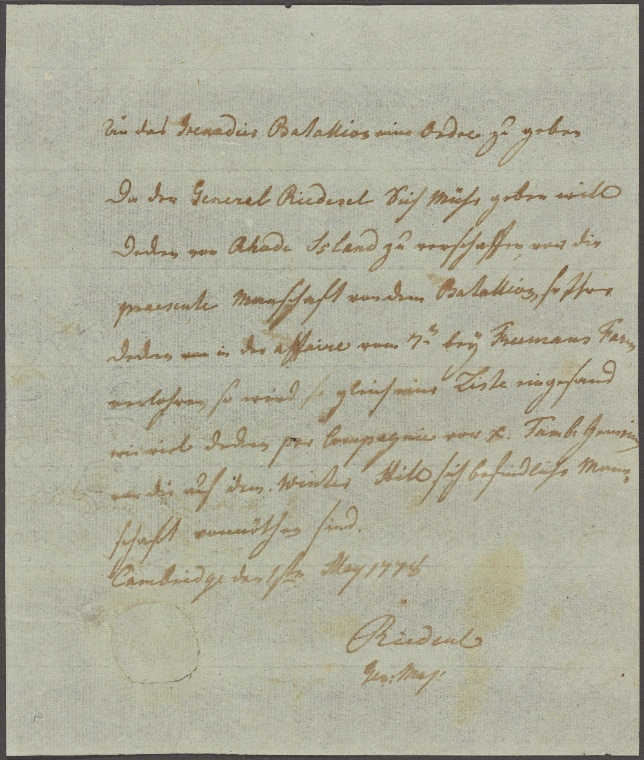 An das Grenadier Batallion eine Ordre zu geben
Da der General Riedesel Sich Mühe geben will
Decken von Rhode Island zu verschaffen, vor die
praesente Manschaft von dem Batallion, so Ihre
Decken in der affaire vom 7ten bey Freemans Farm
verlohren, so wird so gleich eine Liste eingesand
wie viel Decken per Compagnie vor Tamb:
vor die auf dem Winter Hill sich befindliche Mann,
schaft vonnöthen sind.
Cambridge den May 1778
Riedesel
Gen: Maj: